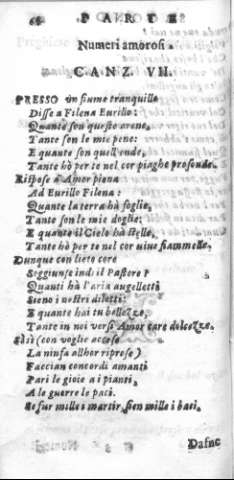 68 PARTE
Numeri amorosi.
CANZ. VII.
PRESSO un fiume tranquillo
Disse a Filena Eurillo:
Quante son queste arene,
Tante son le mie pene:
E quante son quell'onde,
Tante hò per te nel cor piaghe profonde.
Rispose d'Amor piena
Ad Eurillo Filena:
Quante la terra hà foglie,
Tante son le mie doglie;
E quante il Cielo hà stelle,
Tante hò per te nel cor viue fiammelle.
Dunque con lieto core
Soggiunse indi il Pastore;
Quanti hà l'aria augelletti
Sieno i nostri diletti:
E quante hai tu bellezze,
Tante in noi versi Amor care dolcezze.
Sì sì (con voglie accese
La ninfa allhor riprese)
Faccian concordi amanti
Pari le gioie a i pianti,
A le guerre le paci.
Se fur mille i martir, sien mille i baci.
Dafne